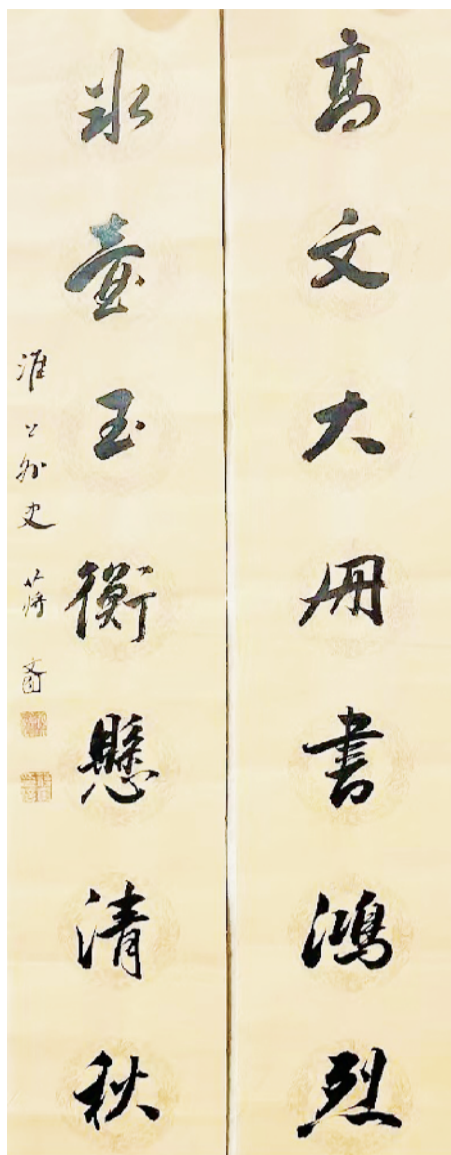 高文大冊書鴻烈
冰壺玉衡懸清秋
淮外史蔣